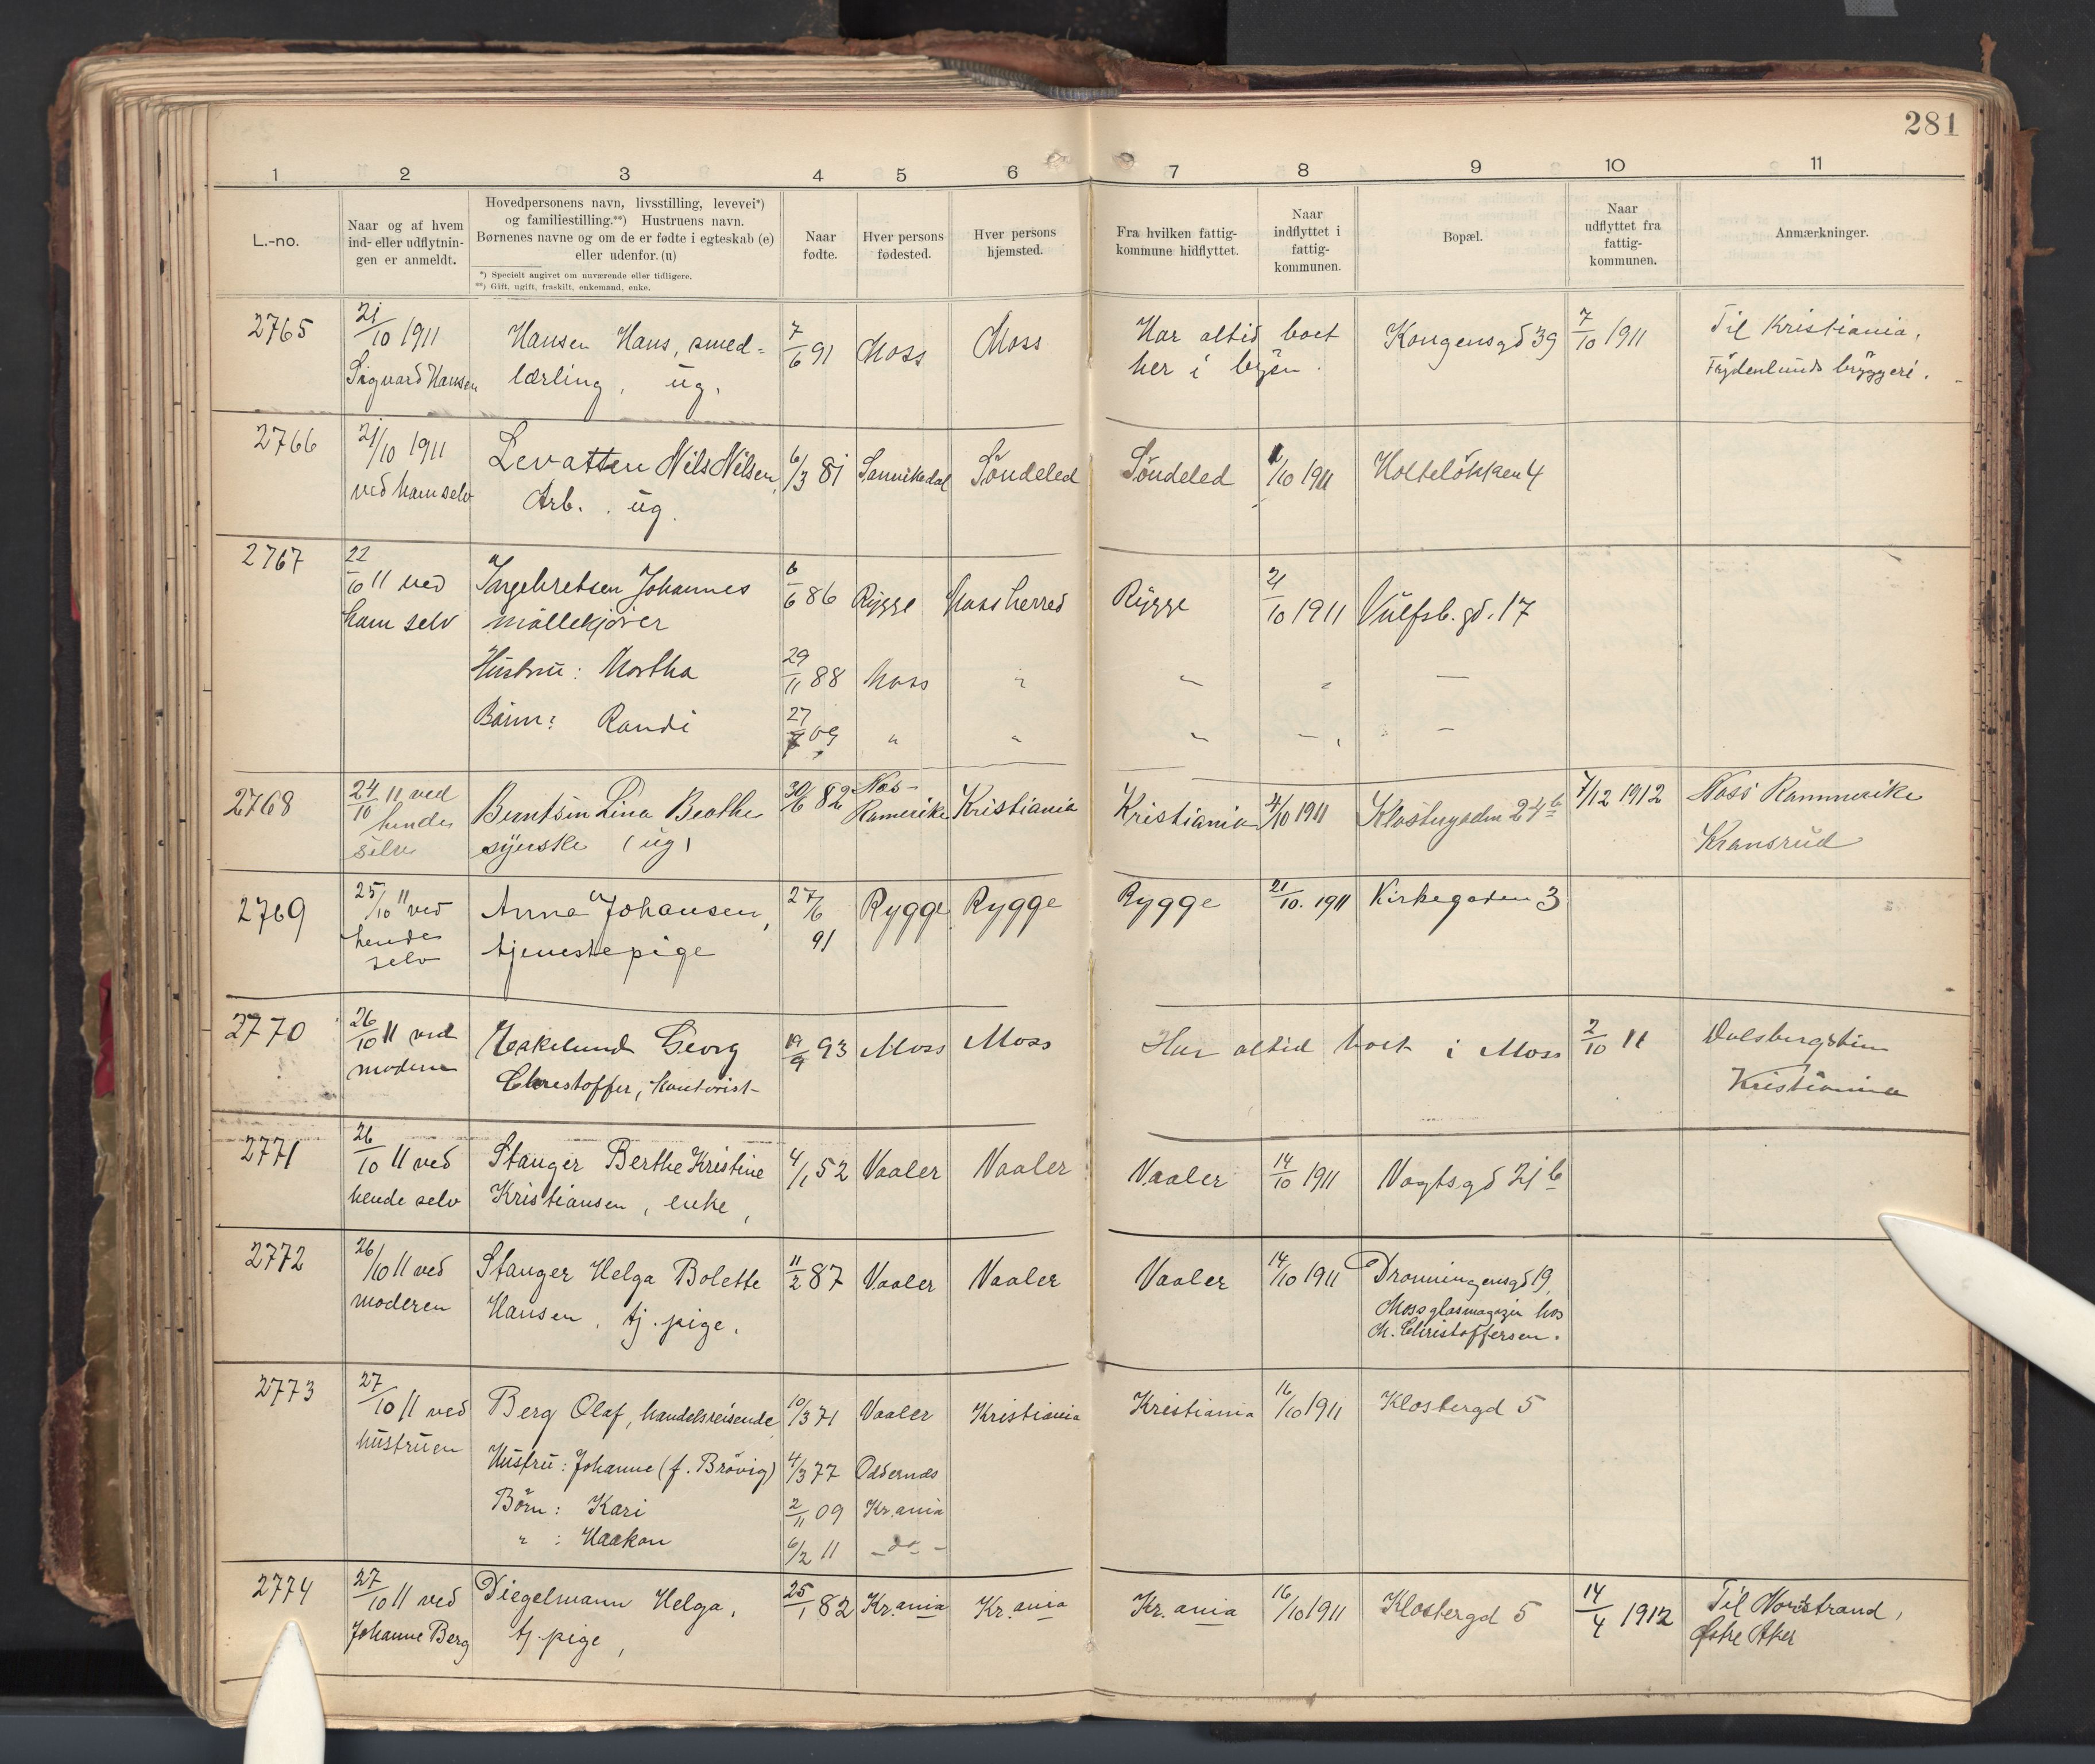 281
1 2 3 4 5 6 7 8 9 10 11
L.-no.
Naar og af hvem
ind- eller udflytnin-
gen er anmeldt.
Hovedpersonens navn, livsstilling, levevei*)
og familiestilling.**) Hustruens navn.
Børnenes navne og om de er fødte i egteskab (e)
eller udenfor. (u)
*) Specielt angivet om nuværende eller tidligere.
**) Gift, ugift, fraskilt, enkemand, enke.
Naar
fødte.
Hver persons
fødested.
Hver persons
hjemsted.
Fra hvilken fattig-
kommune hidflyttet.
Naar
indflyttet i
fattig-
kommunen.
Bopæl.
Naar
udflyttet fra
fattig-
kommunen.
Anmærkninger.
2765 21/10 1911 Hansen Hans, smed= 7/6 91 Moss Moss Har altid boet Kongensgd 39 7/10 1911 Til Kristiania,
Sigvard Hansen lærling, ug. her i byen. Frydenlunds bryggeri.
2766 21/10 1911 Levatten Nils Nilsen, 6/3 81 Sannikedal Söndeled Söndeled 1/10 1911 Holtelökken 4
ved ham selv Arb. . ug.
2767 22/10 11 ved Ingebretsen Johannes 6/6 86 Rygge Moss herred Rygge 21/10 1911 Vulfsb.gd. 17
ham selv möllekjörer
Hustru: Martha 29/11 88 Moss " " " —
Barn: Randi 27/ 09 " " " — —
2768 24/10 11 ved Berntsen Lina Beathe 30/6 82 Næs- Kristiania Kristiania 4/10 1911 Klostergaden 24 b 7/12 1912 Næss Rommerike
hende syerske (ug) Romerike
selv
2769 25/10 11 ved Anna Johansen, 27/6 Rygge Rygge Rygge 21/10. 1911 Kirkegaden 3
hende tjenestepige 91
selv
2770 26/10 11 ved Eskelund Georg 19/9 93 Moss Moss Har altid boet i Moss 2/10 11
moderen Christoffer, kontorist Kristiania
2771 26/10 11 ved Stanger Berthe Kristine 4/1 52 Vaaler Vaaler Vaaler 14/10 1911 Vogtsgd 21 b
hende selv Kristiansen, enke,
2772 26/10 11 ved Stanger Helga Bolette 11/2 87 Vaaler Vaaler Vaaler 14/10 1911 Dronningensgd 19,
moderen Hansen, tj. pige. Moss glasmagazin hos
M. Christoffersen.
2773 27/10 11 ved Berg Olaf, handelsreisende, 10/3 71 Vaaler Kristiania Kristiania 16/10 1911 Klostergd 5
hustruen
Hustru: Johanne (f. Brövig) 4/3 77 Oddernæs
Börn: Kari 2/11 09 Kr.ania
" : Haakon 6/2 11 — do —
2774 27/10 11 ved Diegelmann Helga, 25/1 82 Kr.ania Kr.ania Kr.ania 16/10 1911 Klostergd 5 14/4 1912 Til Nordstrand,
Johanne Berg tj. pige, Østre Aker